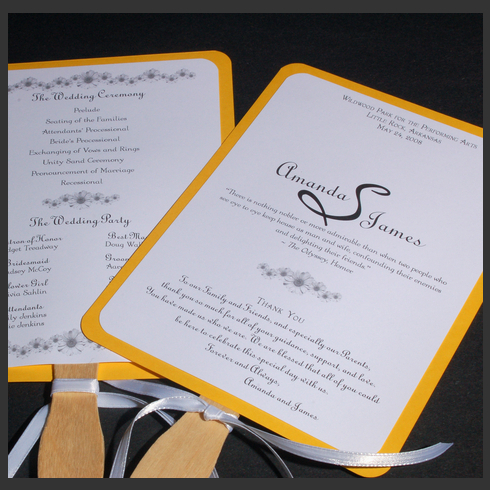 The Wedding Ceremony
Prelude
Seating of the Families
Attendants' Processional
Bride's Processional
Exchanging of Vows and Rings
Unity Sand Ceremony
Pronouncement of Marriage
Recessional
The Wedding Party
of Honor
Treadway
Best
Doug
McCoy
Groom
Girl
Sahlin
Jenkins
Wildwood Park for the Performing Arts
Little Rock, Arkansas
May 24, 2008
Amanda S James
"There is nothing nobler or more admirable than when two people who
see eye to eye keep house as man and wife, confounding their enemies
and delighting their friends"
~ The Odyssey, Homer
Thank You
To our Family and Friends, and especially our Parents,
thank you so much for all of your guidance, support, and love.
You have made us who we are. We are blessed that all of you could
be here to celebrate this special day with us.
Forever and Always,
Amanda and James